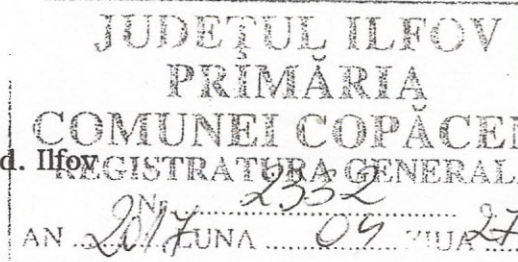 JUDEŢUL ILFOV
PRIMĂRIA
COMUNEI COPĂCEN
d. Ilfov
REGISTRATURA GENERAL
Nr. 2332
AN 2017 LUNA 04 ZIUA 27